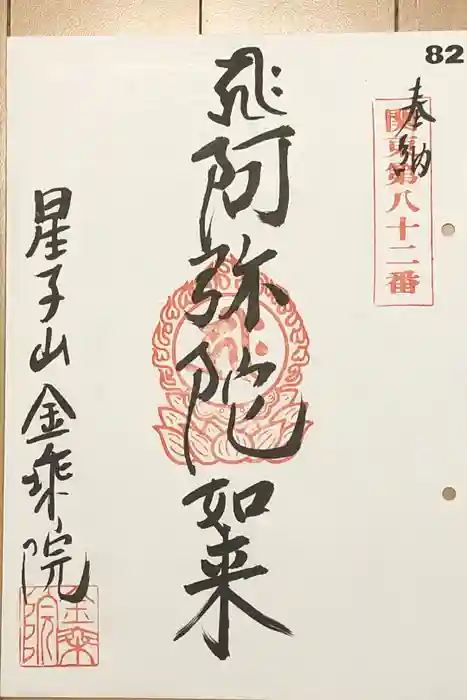 82
奉納
関東第八十二番
阿弥陀如来
星子山 金乗院
金乗院